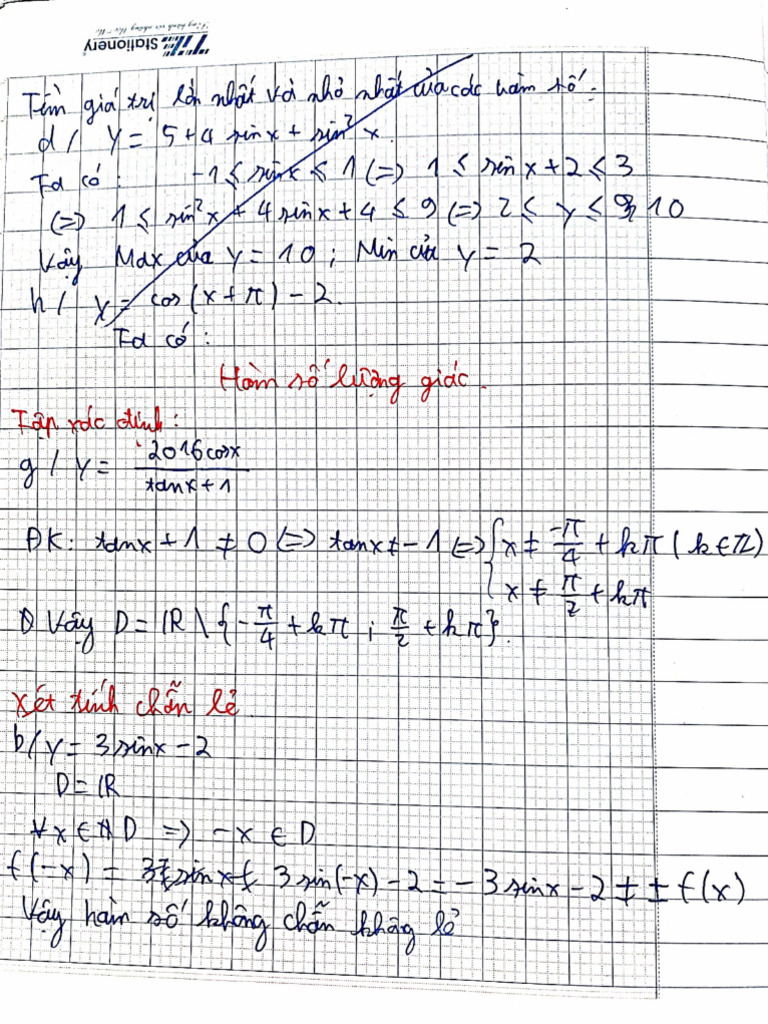 Stationery
Tìm giá trị lớn nhất và nhỏ nhất của các hàm số:
d/ y = 5+4 sinx + sin²x.
Ta có: -1 ≤ sinx ≤ 1 (=) 1 ≤ sin x + 2 ≤ 3
(=) 1 ≤ sin²x + 4 sinx + 4 ≤ 9 (=) 2 ≤ y ≤ 10
Vậy Max của y = 10; Min của y = 2
h/ y = cos(x+π) - 2.
Ta có:
Hàm số lượng giác.
Tập xác định:
g/ y = 2016cosx / tanx+1
ĐK: tanx + 1 ≠ 0 (=) tanx ≠ -1 (=) { x ≠ -π/4 + kπ (k ∈ Z)
x ≠ π/2 + kπ
Vậy D = ℝ \ {-π/4 + kπ ; π/2 + kπ}.
Xét tính chẵn lẻ
b/ y = 3 sinx - 2
D = ℝ
∀x ∈ D => -x ∈ D
f(-x) = 3 sin(-x) - 2 = -3 sinx - 2 ≠ ± f(x)
Vậy hàm số không chẵn không lẻ